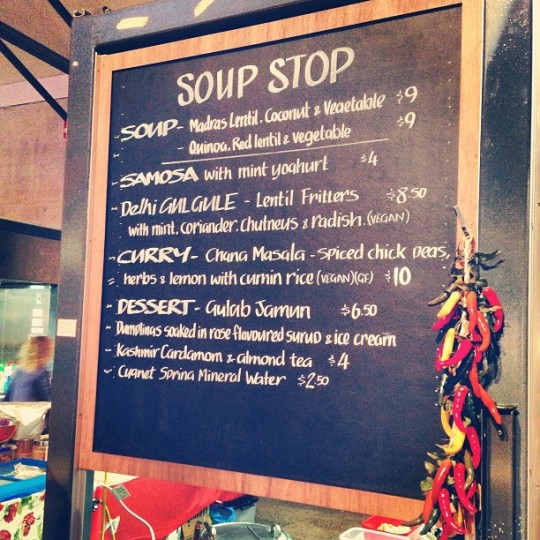 SOUP STOP
SOUP - Madras Lentil. Coconut & Vegetable $9
- Quinoa. Red lentil & vegetable $9
SAMOSA with mint yoghurt $4
Delhi GULGULE - Lentil Fritters $8.50
with mint. coriander. chutneys & radish. (VEGAN)
CURRY - Chana Masala - spiced chick peas,
herbs & lemon with cumin rice (VEGAN)(GF) $10
DESSERT - Gulab Jamun $6.50
Dumplings soaked in rose flavoured syrup & ice cream
Kashmir Cardamom & almond tea $4
Cygnet Spring Mineral Water $2.50